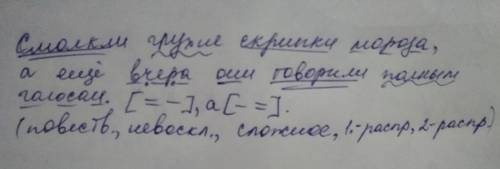 Смолкли грузные скрипки мороза,
а ещё вчера они говорили полным
голосом. [= -], а [- =].
(повеств., невоскл., сложное, 1.-распр, 2-распр)